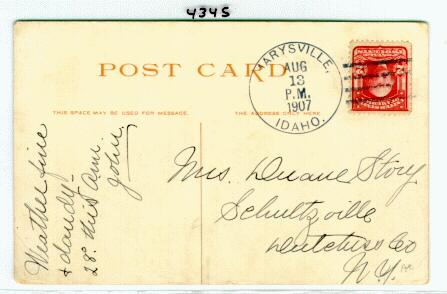 4345
POST CARD
THIS SPACE MAY BE USED FOR MESSAGE.
THE ADDRESS ONLY HERE.
MARYSVILLE,
AUG
13
P.M.
1907
IDAHO.
Weather fine
& dandy -
28° this am.
John.
Mrs. Duane Story
Schultzville
Dutchess Co
N.Y.